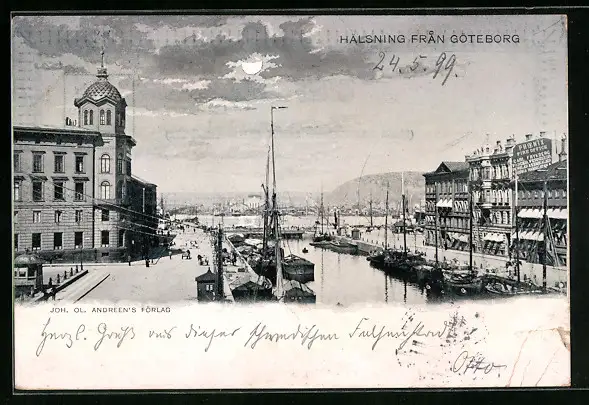 HÄLSNING FRÅN GÖTEBORG
24.5.99.
PRIMUS
JOH. OL. ANDREEN'S FÖRLAG
Herzl. Gruß aus dieser schwedischen Hafenstadt
Otto.